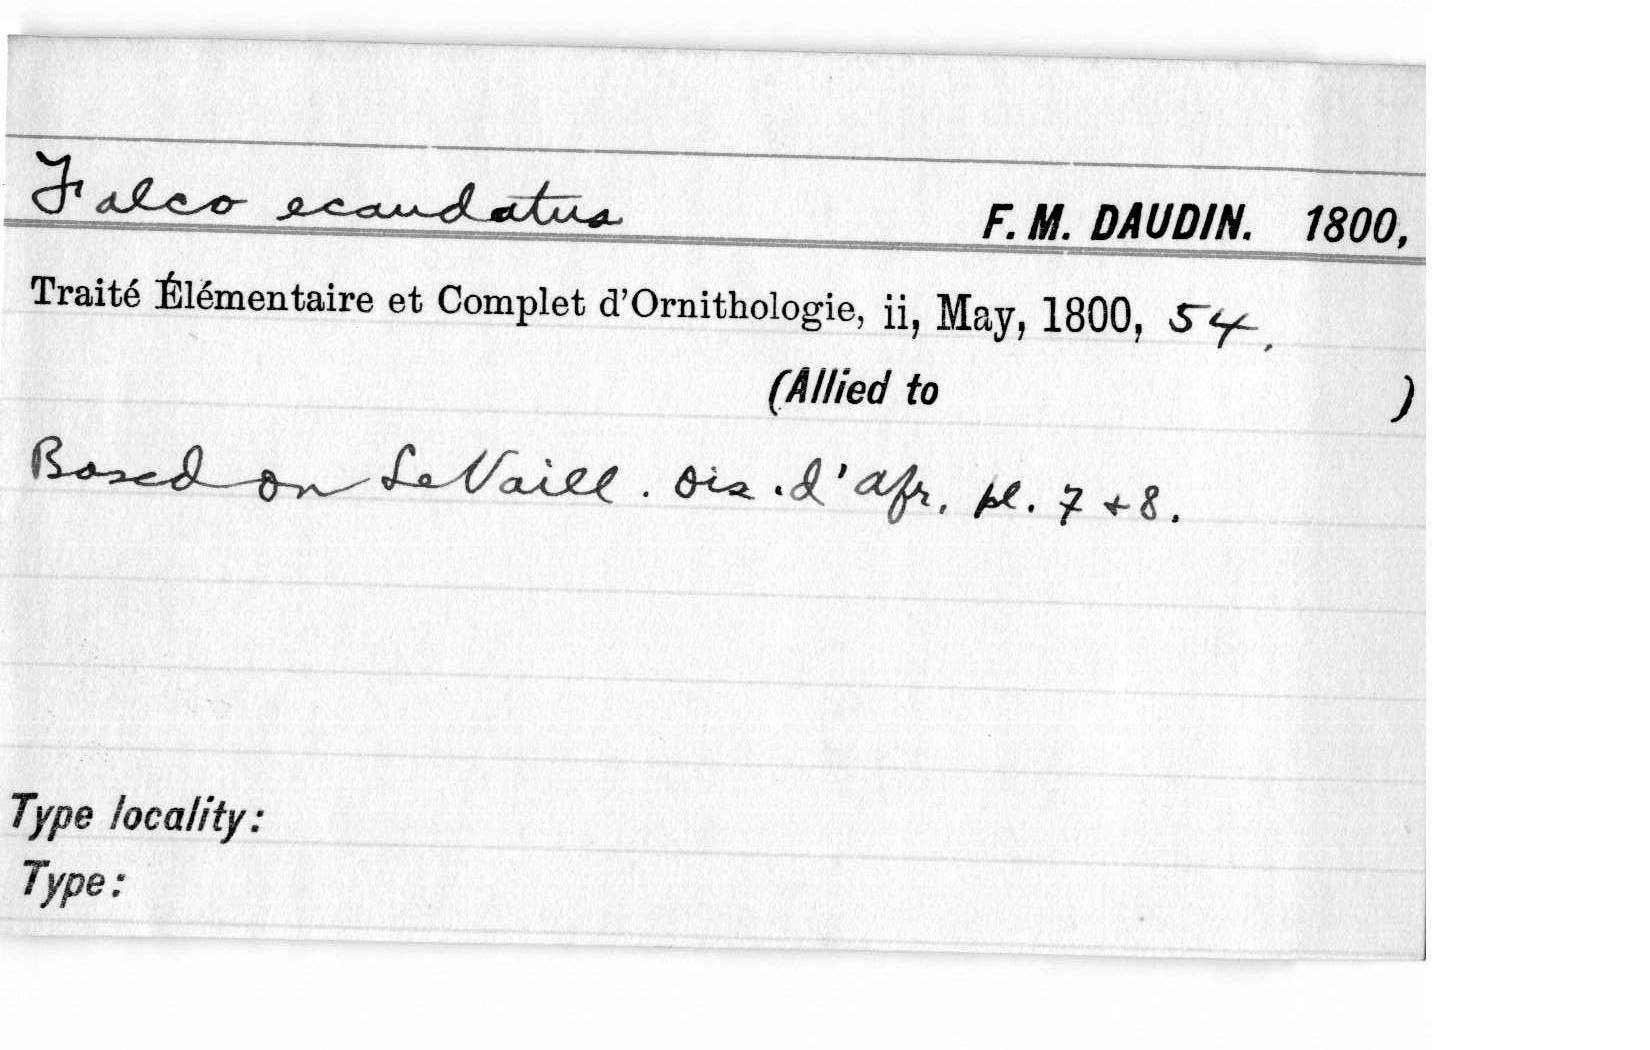 Falco ecaudatus F. M. DAUDIN. 1800,
Traité Élémentaire et Complet d'Ornithologie, ii, May, 1800, 54.
(Allied to )
Based on LeVaill. Ois. d'Afr. pl. 7 + 8.
Type locality:
Type: